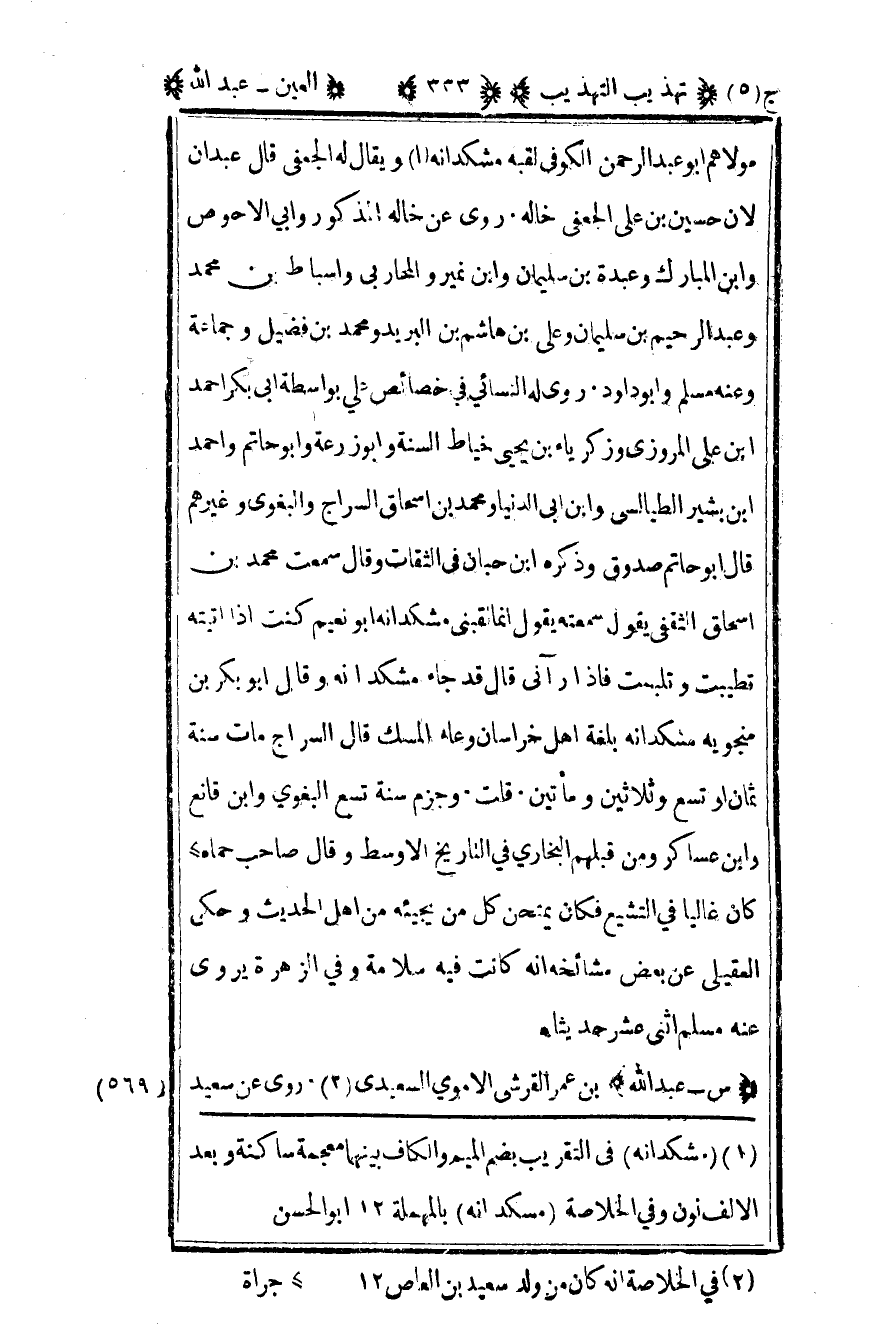 ج(٥) تهذيب التهذيب ٣٣٣ العين - عبد الله
مولاهم ابو عبد الرحمن الكوفي لقبه مشكدانه(١) و يقال له الجعفى قال عبدان
لان حسين بن على الجعفى خاله . روى عن خاله المذكور وابي الاحوص
وابن المبارك وعبدة بن سليمان وابن نمير والمحاربى واسباط بن محمد
وعبد الرحيم بن سليمان وعلى بن هاشم بن البريد ومحمد بن فضيل و جماعة
وعنه مسلم وابوداود . روى له النسائي في خصائص علي بواسطة ابى بكر احمد
ابن على المروزى وزكرياء بن يحيى خياط السنة وابوزرعة وابوحاتم واحمد
ابن بشير الطيالسى وابن ابى الدنيا ومحمد بن اسحاق السراج والبغوى وغيرهم
قال ابوحاتم صدوق وذكره ابن حبان فى الثقات وقال سمعت محمد بن
اسحاق الثقفى يقول سمعته يقول انما لقبنى مشكدانه ابو نعيم كنت اذا اتيته
تطيبت و تلبست فاذا رآنى قال قد جاء مشكدانه و قال ابو بكر بن
منجويه مشكدانه بلغة اهل خراسان وعاء المسك قال السراج مات سنة
ثمان او تسع وثلاثين و مأتين . قلت . وجزم سنة تسع البغوي وابن قانع
وابن عساكر ومن قبلهم البخاري في التاريخ الاوسط و قال صاحب حماه>
كان غاليا في التشيع فكان يمتحن كل من يجيئه من اهل الحديث و حكى
العقيلى عن بعض مشائخه انه كانت فيه سلامة و في الزهرة يروى
عنه مسلم اثنى عشر حديثاه
س - عبد الله بن عمر القرشى الاموي السعيدى (٢) . روى عن سعيد (٥٦٩)
(١)(مشكدانه) فى التقريب بضم الميم والكاف بينهما معجمة ساكنة و بعد
الالف نون وفي الخلاصة (مسكدانه) بالمهملة ١٢ ابوالحسن
(٢) في الخلاصة انه كان من ولد سعيد بن العاص ١٢ > جراة